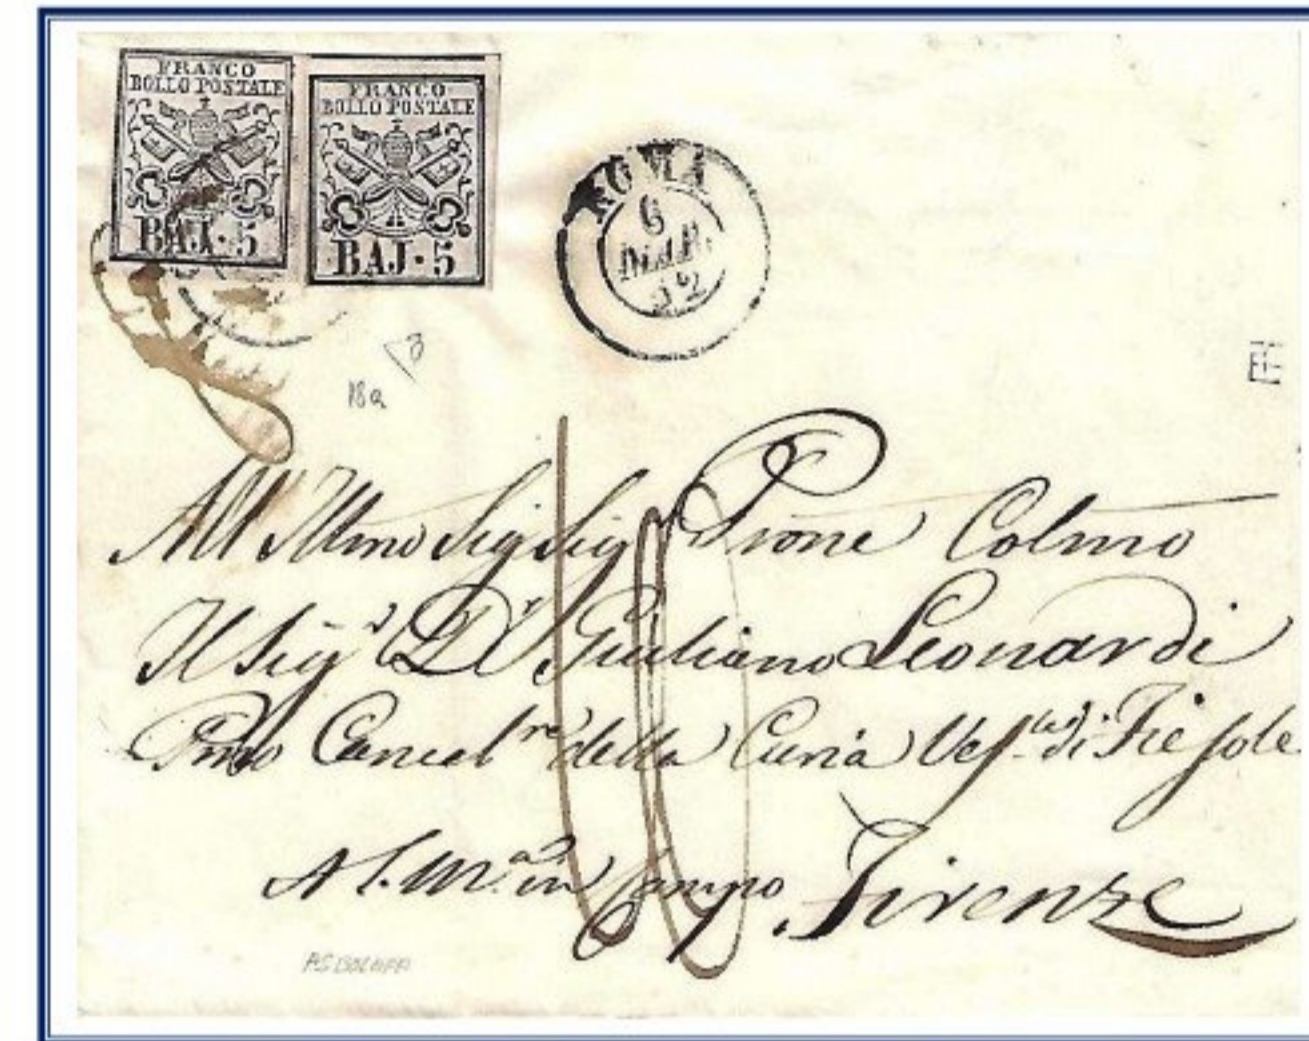 FRANCO
BOLLO POSTALE
BAJ·5
FRANCO
BOLLO POSTALE
BAJ·5
ROMA
6
MAR.
52
18a
All' Illmo Sig Sig Prone Colmo
Il Sig.r Dr. Giuliano Leonardi
Pmo Cancelre della Curia Vesle di Fiesole
A S. Ma in Campo Firenze